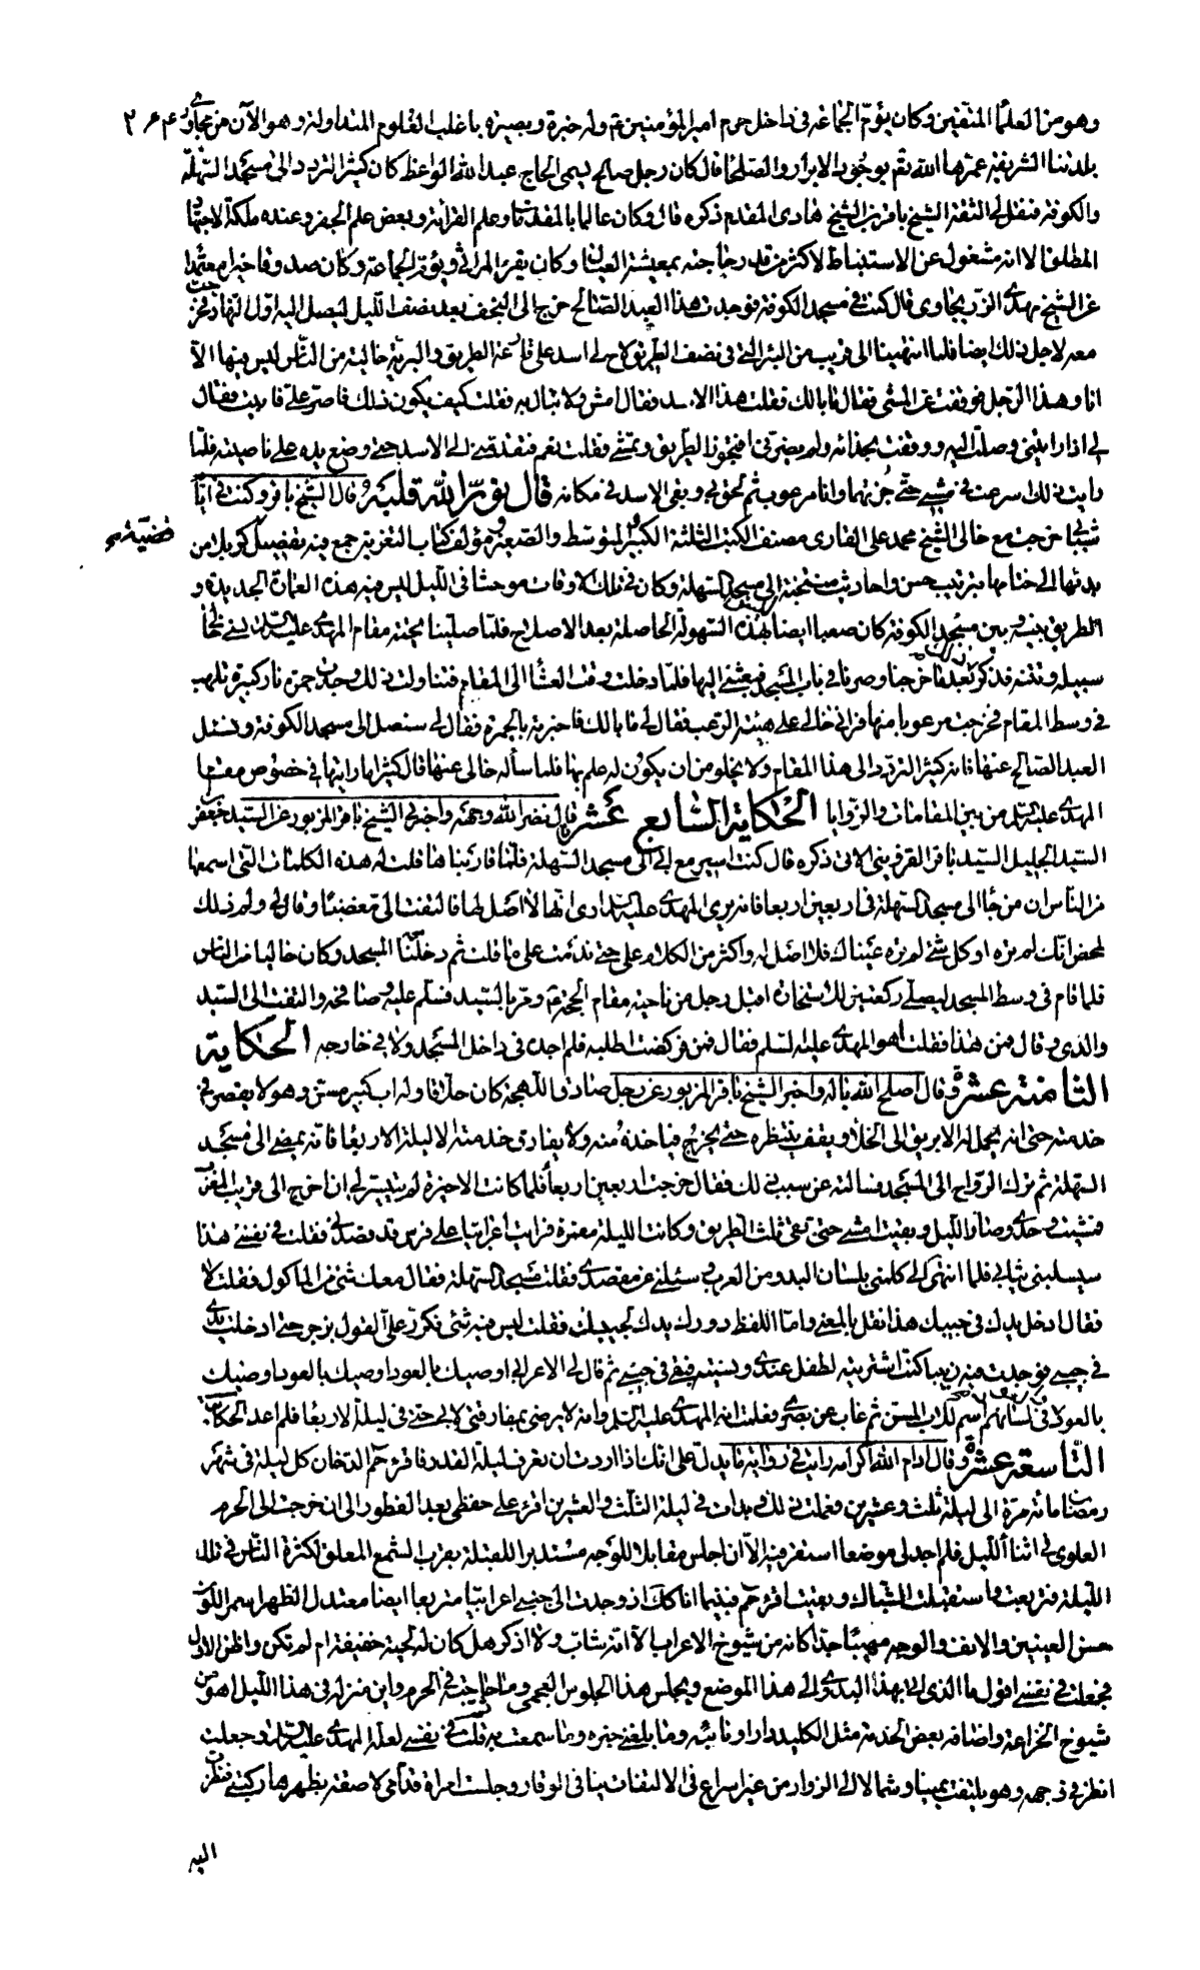 وهو من العلماء المتقين وكان يؤم الجماعة فى داخل حرم امير المؤمنين ع وله خبرة وبصيرة باغلب العلوم المتداولة وهو الآن من مجاورى
بلدتنا الشريفة عمرها الله تم بوجود الابرار والصلحاء قال كان رجل صالح يسمى الحاج عبد الله الواعظ كان كثير التردد الى مسجد السهلة
والكوفة فنقل لى الثقة الشيخ باقر بن الشيخ هادى المقدم ذكره قال وكان عالما بالمقدمات وعلم القرائة وبعض علم الجفر وعنده ملكة الاجتهاد
المطلق الا انه مشغول عن الاستنباط لاكثر من قدر حاجته بمعيشة العيال وكان يقرء المراثى ويؤم الجماعة وكان صدوقا خيرا معتمدا
عن الشيخ مهدى الزريجاوى قال كنت فى مسجد الكوفة فوجدت هذا العبد الصالح خرج الى النجف بعد نصف الليل ليصل اليه اول النهار فخرجت
معه لاجل ذلك ايضا فلما انتهينا الى قريب من البئر التى فى نصف الطريق لاح لى اسد على قارعة الطريق والبرية خالية من الناس ليس فيها الا
انا وهذا الرجل فوقفت عن المشى فقال ما بالك فقلت هذا الاسد فقال امش ولا تبال به فقلت كيف يكون ذلك فاصر على فابيت فقال
لى اذا رايتنى وصلت اليه ووقفت بحذائه ولم يضرنى افتجوز الطريق وتمشى فقلت نعم فتقدمنى الى الاسد حتى وضع يده على ناصيته فلما
رايت ذلك اسرعت فى مشيى حتى جزتهما وانا مرعوب ثم لحق بى وبقى الاسد فى مكانه قال نور الله قلبه وقال الشيخ باقر وكنت فى ايام
شبابى خرجت مع خالى الشيخ محمد على القارى مصنف الكتب الثلثة الكبير والمتوسط والصغير ومؤلف كتاب التعزية جمع فيه تفصيل قضية كربلا من
بدئها الى ختامها بترتيب حسن واحاديث منتخبة الى مسجد السهلة وكان فى تلك الاوقات موحشا فى الليل ليس فيه هذه العمارة الجديدة و
الطريق بينه وبين مسجد الكوفة كان صعبا ايضا ليس بهذه السهولة الحاصلة بعد الاصلاح فلما صلينا تحية مقام المهدى عليه السلام نسى خالى
سبيله وتتنه فذكر ذلك بعد ما خرجنا وصرنا فى باب المسجد فبعثنى اليها فلما دخلت وقت العشاء الى المقام فتناولت ذلك وجدت جمرة نار كبيرة تلهب
فى وسط المقام فخرجت مرعوبا منها فرانى خالى على هيئة الرعب فقال لى ما بالك فاخبرته بالجمرة فقال لى سنصل الى مسجد الكوفة ونسئل
العبد الصالح عنها فانه كثير التردد الى هذا المقام ولا يخلو من ان يكون له علم بها فلما سأله خالى عنها قال كثيرا ما رايتها فى خصوص مقام
المهدى عليه السلام من بين المقامات والزوايا الحكاية السابع عشر قال نضر الله وجهه واخبرنى الشيخ باقر المزبور عن السيد جعفر بن
السيد الجليل السيد باقر القزوينى الاتى ذكره قال كنت اسير مع ابى الى مسجد السهلة فلما قاربناها قلت له هذه الكلمات التى اسمعها
من الناس ان من جاء الى مسجد السهلة فى اربعين اربعاء فانه يرى المهدى عليه السلام ارى انها لا اصل لها فالتفت الى مغضبا وقال لى ولم ذلك
لمحض انك لم تره او كل شئ لم تره عيناك فلا اصل له واكثر من الكلام على حتى ندمت على ما قلت ثم دخلنا المسجد وكان خاليا من الناس
فلما قام فى وسط المسجد ليصلى ركعتين للاستجارة اقبل رجل من ناحية مقام الحجة ع ومر بالسيد فسلم عليه وصافحه والتفت الى السيد
والدى وقال فمن هذا فقلت اهو المهدى عليه السلام فقال فمن فركضت اطلبه فلم اجده فى داخل المسجد ولا فى خارجه الحكاية
الثامنة عشرة وقال اصلح الله باله واخبر الشيخ باقر المزبور عن رجل صادق اللهجة كان حلاقا وله اب كبير مسن وهو لا يقصر فى
خدمته حتى انه يحمل له الابريق الى الخلاء ويقف ينتظره حتى يخرج فياخذه منه ولا يفارق خدمته الا ليلة الاربعاء فانه يمضى الى مسجد
السهلة ثم ترك الرواح الى المسجد فسالته عن سبب ذلك فقال خرجت اربعين اربعاء فلما كانت الاخيرة لم يتيسر لى ان اخرج الى قريب المغرب
فمشيت وحدى وصار الليل وبقيت امشى حتى بقى ثلث الطريق وكانت الليلة مقمرة فرايت اعرابيا على فرس قد قصدنى فقلت فى نفسى هذا
سيسلبنى ثيابى فلما انتهى الى كلمنى بلسان البدو من العرب وسئلنى عن مقصدى فقلت مسجد السهلة فقال معك شئ من الماكول فقلت لا
فقال ادخل يدك فى جيبك هذا نقل بالمعنى واما اللفظ دورك يدك لجيبك فقلت ليس فيه شئ فكرر على القول بزجر حتى ادخلت يدى
فى جيبى فوجدت فيه زبيبا كنت اشتريته لطفل عندى ونسيته فبقى فى جيبى ثم قال لى الاعرابى اوصيك بالعود اوصيك بالعود اوصيك
بالعود والعود فى لسانهم اسم للاب المسن ثم غاب عن بصرى فعلمت انه المهدى عليه السلام وانه لا يرضى بمفارقتى لابى حتى فى ليلة الاربعاء فلم اعد الحكاية
التاسعة عشرة وقال ادام الله اكرامه رايت فى رواية ما يدل على انك اذا اردت ان تعرف ليلة القدر فاقرء حم الدخان كل ليلة فى شهر
رمضان مائة مرة الى ليلة ثلث وعشرين فعملت ذلك وبدات فى ليلة الثلث والعشرين اقرء على حفظى بعد الفطور الى ان خرجت الى الحرم
العلوى فى اثناء الليل فلم اجد لى موضعا استقر فيه الا ان اجلس مقابلا للوجه مستدبرا للقبلة بقرب الشمع المعلق لكثرة الناس فى تلك
الليلة فتربعت واستقبلت الشباك وبقيت اقرء حم فبينما انا كك اذ وجدت الى جنبى اعرابيا متربعا ايضا معتدل الظهر اسمر اللون
حسن العينين والانف والوجه مهيبا جدا كانه من شيوخ الاعراب الا انه شاب ولا اذكر هل كان له لحية خفيفة ام لم تكن واظن الاول
فجعلت فى نفسى اقول ما الذى اتى بهذا البدوى الى هذا الموضع ويجلس هذا الجلوس العجمى وما حاجته فى الحرم واين منزله فى هذا الليل اهو من
شيوخ الخزاعة واضافه بعض الخدمة مثل الكليددار او نائبه وما بلغنى خبره وما سمعت به ثم قلت فى نفسى لعله المهدى عليه السلام وجعلت
انظر فى وجهه وهو يلتفت يمينا وشمالا الى الزوار من غير اسراع فى الالتفات ينافى الوقار وجلست امراة قدامى لاصقة بظهرها ركبتى فنظرت
اليه